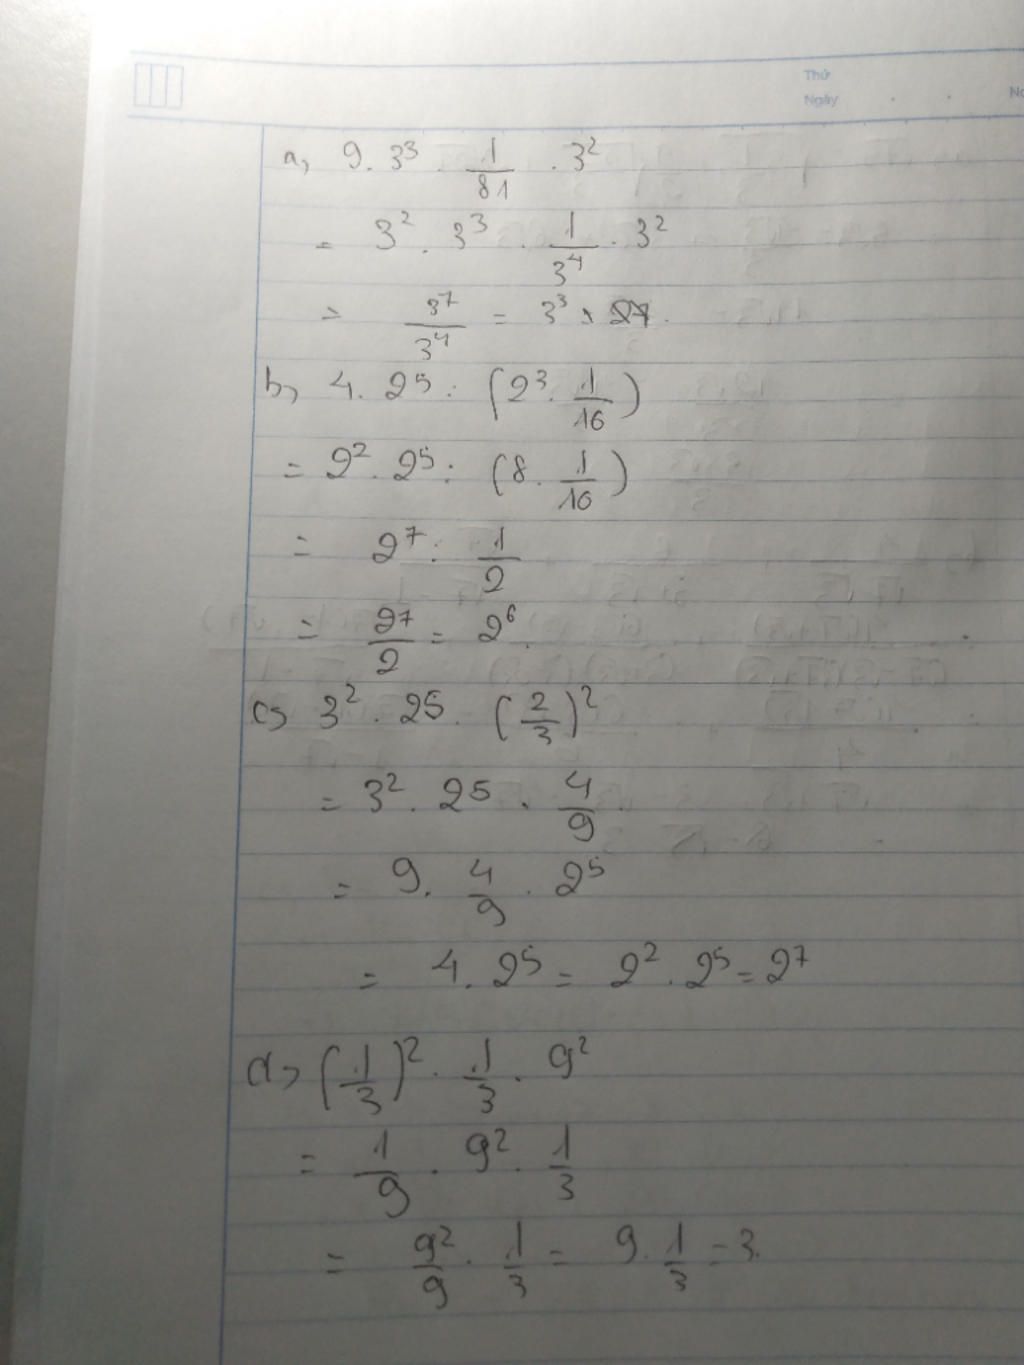 Thứ
Ngày
No
a, 9 . 3³ . 1/81 . 3²
= 3² . 3³ . 1/3⁴ . 3²
= 3⁷/3⁴ = 3³
b, 4 . 2⁵ : (2³ . 1/16)
= 2² . 2⁵ : (8 . 1/16)
= 2⁷ : 1/2
= 2⁷/2 = 2⁶.
c, 3² . 2⁵ . (2/3)²
= 3² . 2⁵ . 4/9
= 9 . 4/9 . 2⁵
= 4 . 2⁵ = 2² . 2⁵ = 2⁷
d, (1/3)² . 1/3 . 9²
= 1/9 . 9² . 1/3
= 9²/9 . 1/3 = 9 . 1/3 = 3.